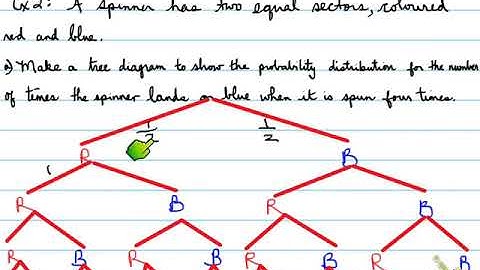 Ex2: A spinner has two equal sectors, coloured
red and blue.
a) Make a tree diagram to show the probability distribution for the number
of times the spinner lands on blue when it is spun four times.
1/2 1/2
R B
R B R B
R B R B R B R B